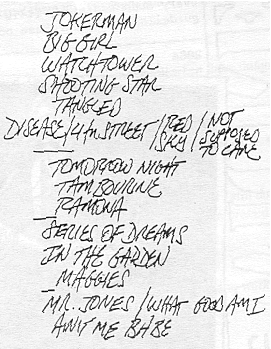 JOKERMAN
BIG GIRL
WATCHTOWER
SHOOTING STAR
TANGLED
DISEASE/4TH STREET/RED SKY/NOT SUPPOSED TO CARE
TOMORROW NIGHT
TAMBOURINE
RAMONA
SERIES OF DREAMS
IN THE GARDEN
MAGGIES
MR. JONES/WHAT GOOD AM I
AIN'T ME BABE